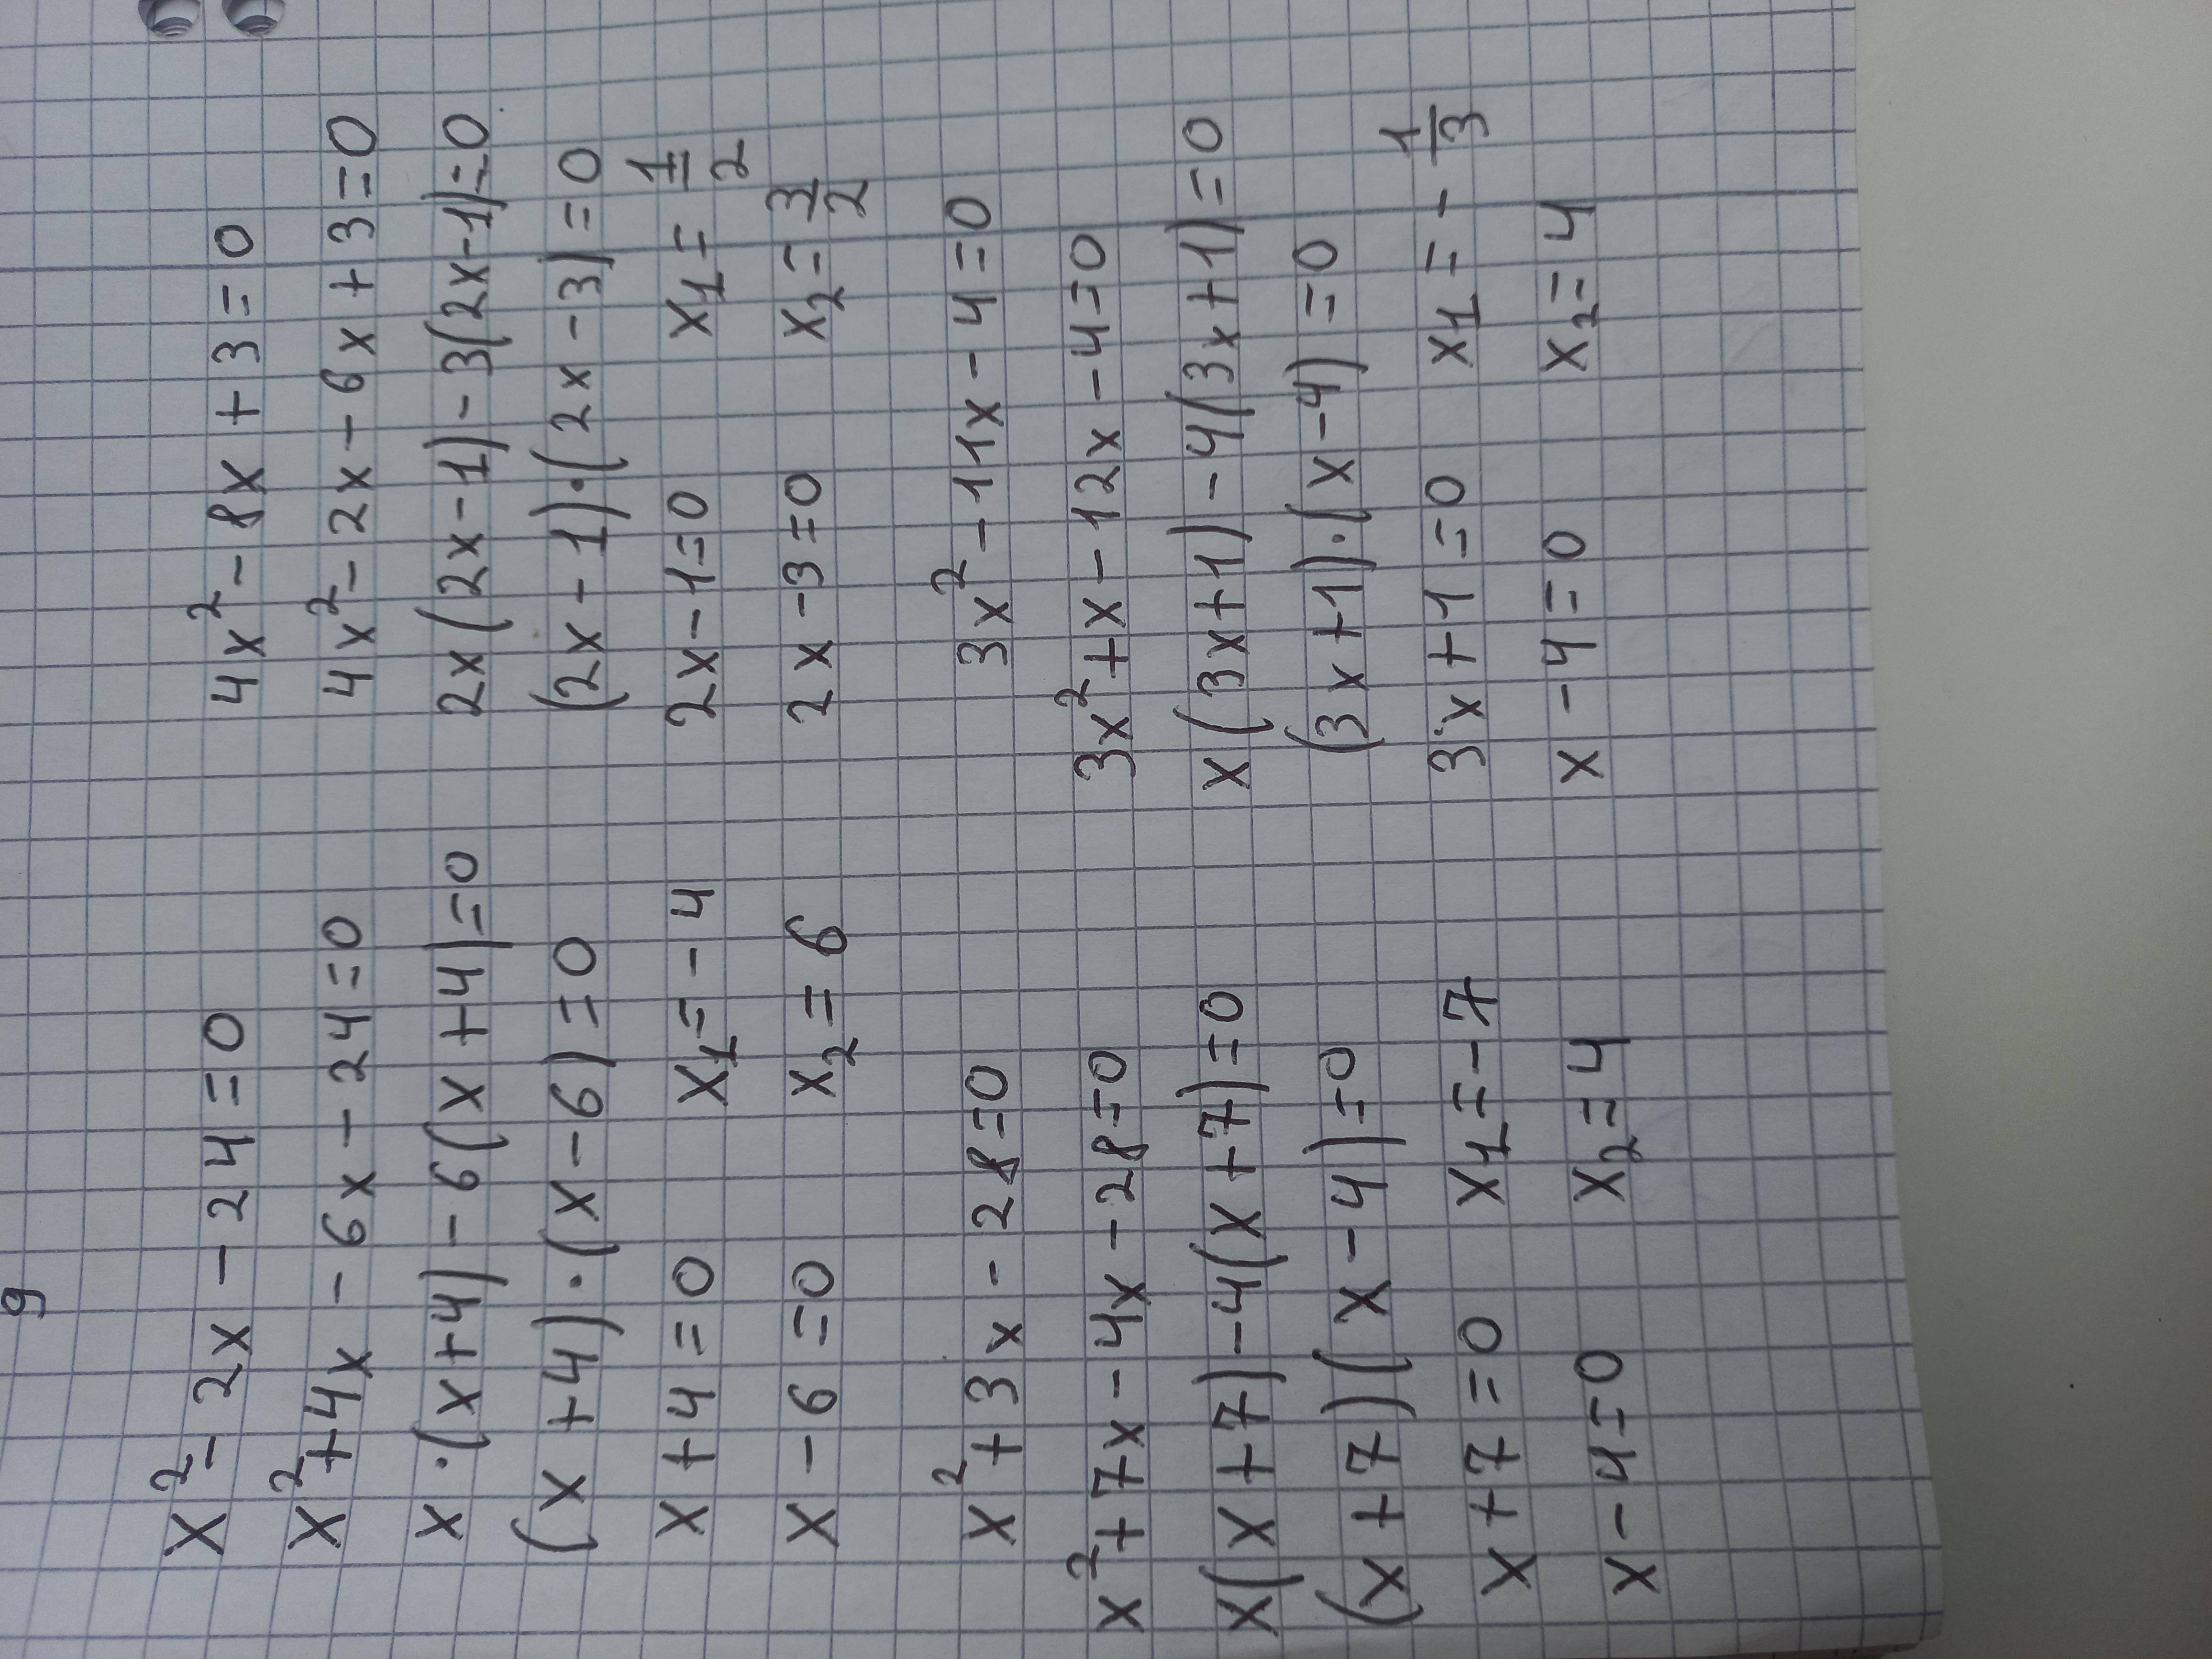 9
x² - 2x - 24 = 0
x² + 4x - 6x - 24 = 0
x · (x + 4) - 6(x + 4) = 0
(x + 4) · (x - 6) = 0
x + 4 = 0 x₁ = - 4
x - 6 = 0 x₂ = 6
x² + 3x - 28 = 0
x² + 7x - 4x - 28 = 0
x(x + 7) - 4(x + 7) = 0
(x + 7)(x - 4) = 0
x + 7 = 0 x₁ = - 7
x - 4 = 0 x₂ = 4
4x² - 8x + 3 = 0
4x² - 2x - 6x + 3 = 0
2x(2x - 1) - 3(2x - 1) = 0
(2x - 1) · (2x - 3) = 0
2x - 1 = 0 x₁ = 1/2
2x - 3 = 0 x₂ = 3/2
3x² - 11x - 4 = 0
3x² + x - 12x - 4 = 0
x(3x + 1) - 4(3x + 1) = 0
(3x + 1) · (x - 4) = 0
3x + 1 = 0 x₁ = - 1/3
x - 4 = 0 x₂ = 4